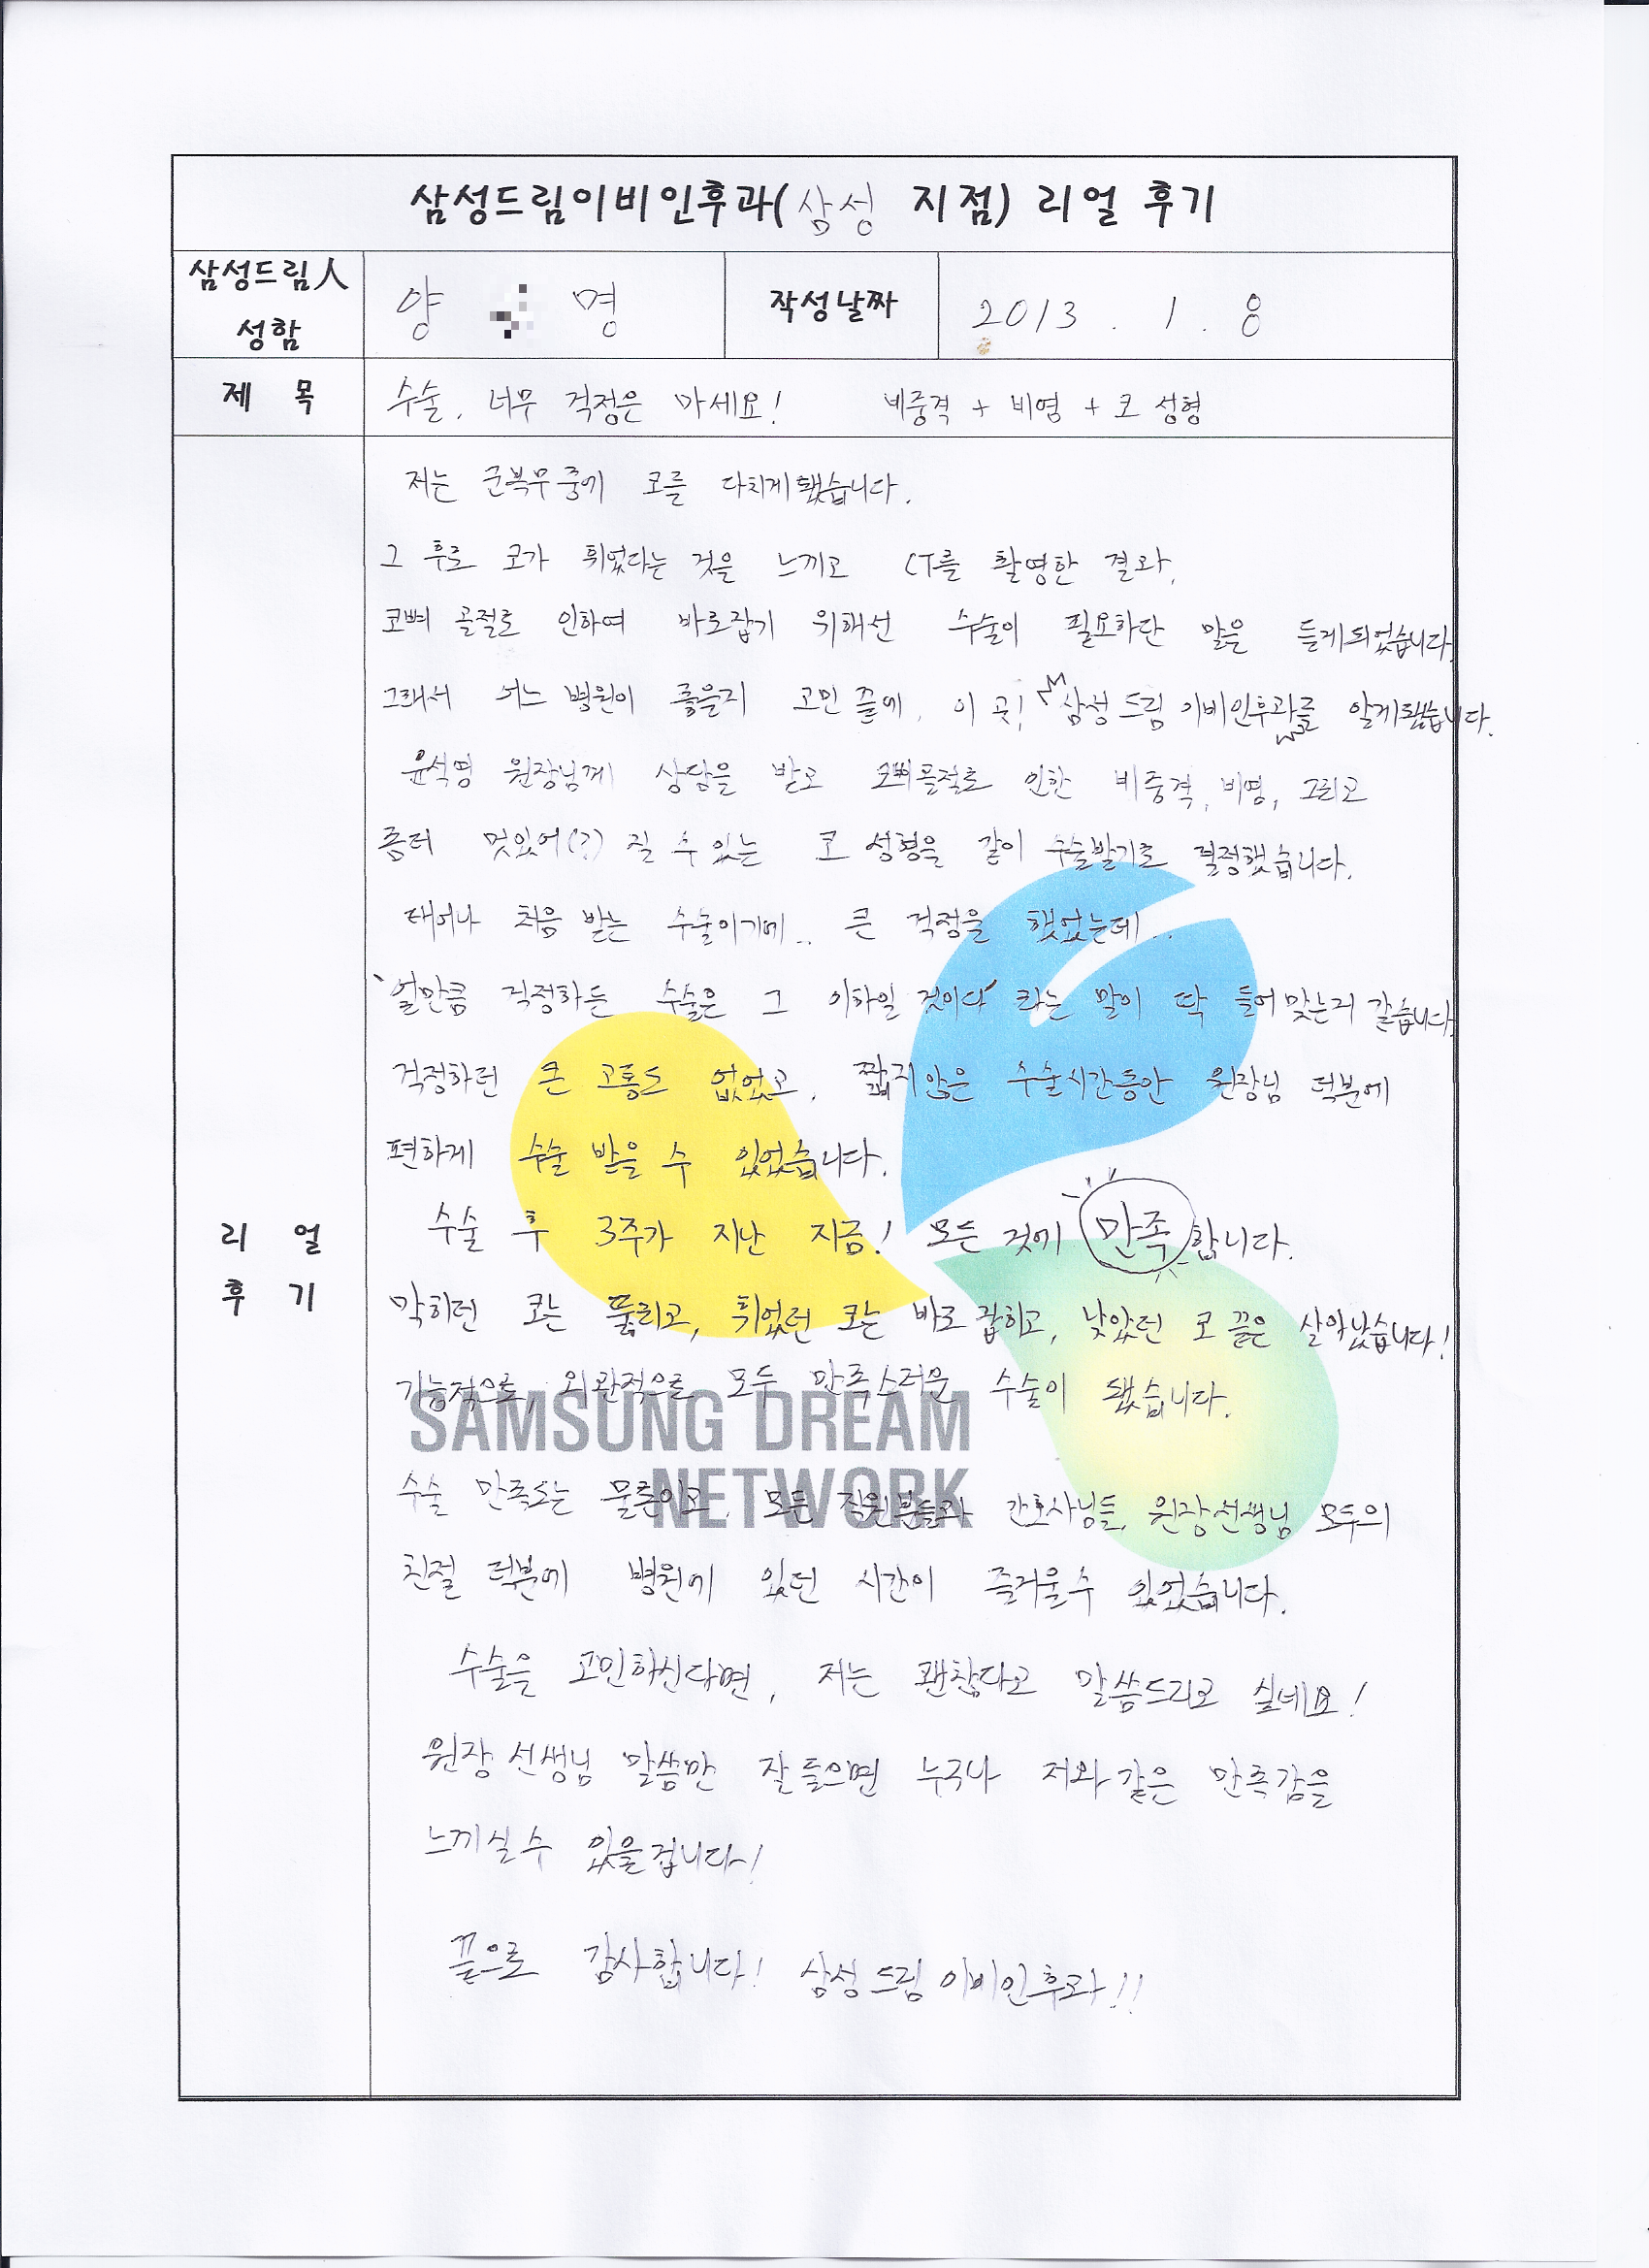 삼성드림이비인후과(삼성 지점) 리얼 후기
삼성드림人 성함
양 명
작성날짜
2013. 1. 8
제 목
수술, 너무 걱정은 마세요! 비중격 + 비염 + 코 성형
리 얼 후 기
저는 군복무중에 코를 다치게됐습니다.
그 후로 코가 휘었다는 것을 느끼고 CT를 촬영한 결과,
코뼈 골절로 인하여 바로잡기 위해선 수술이 필요하단 말을 듣게되었습니다.
그래서 어느 병원이 좋을지 고민 끝에, 이 곳! "삼성드림이비인후과"를 알게됐습니다.
윤석명 원장님께 상담을 받고 코뼈골절로 인한 비중격, 비염, 그리고
좀더 멋있어(?) 질 수 있는 코 성형을 같이 수술받기로 결정했습니다.
태어나 처음 받는 수술이기에.. 큰 걱정을 했었는데..
'얼만큼 걱정하든 수술은 그 이하일 것이다' 라는 말이 딱 들어맞는거 같습니다.
걱정하던 큰 고통도 없었고, 짧지않은 수술시간동안 원장님 덕분에
편하게 수술 받을 수 있었습니다.
수술 후 3주가 지난 지금! 모든 것에 만족합니다.
막히던 코는 뚫리고, 휘었던 코는 바로 잡히고, 낮았던 코 끝은 살아났습니다!
기능적으로, 외관적으로 모두 만족스러운 수술이 됐습니다.
SAMSUNG DREAM
NETWORK
수술 만족도는 물론이고, 모든 직원분들과 간호사님들, 원장선생님 모두의
친절 덕분에 병원에 있던 시간이 즐거울수 있었습니다.
수술을 고민하신다면, 저는 괜찮다고 말씀드리고 싶네요!
원장 선생님 말씀만 잘 들으면 누구나 저와 같은 만족감을
느끼실수 있을겁니다!
끝으로 감사합니다! 삼성드림이비인후과!!